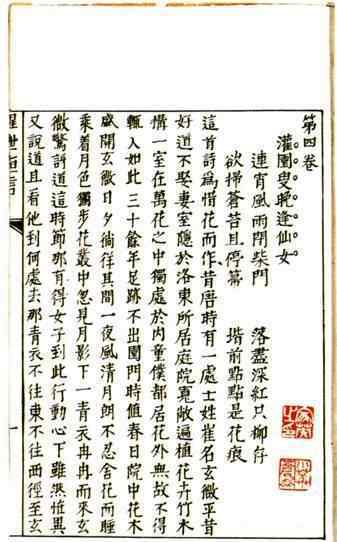 第四卷
灌園叟晚逢仙女
連宵風雨閉柴門　落盡深紅只柳存
欲掃蒼苔且停箒　堦前點點是花痕
這首詩為惜花而作昔唐時有一處士姓崔名玄微平昔
好道不娶妻室隱於洛東所居庭院寬敞遍植花卉竹木
搆一室在萬花之中獨處於內童僕都居花外無故不得
輒入如此三十餘年足跡不出園門時值春日院中花木
盛開玄微日夕徜徉其間一夜風清月朗不忍舍花而睡
乘着月色獨步花叢中忽見月影下一青衣冉冉而來玄
微驚訝道這時節那有得女子到此行動心下雖然怪異
又說道且看他到何處去那青衣不往東不往西徑至玄
醒世恒言
一